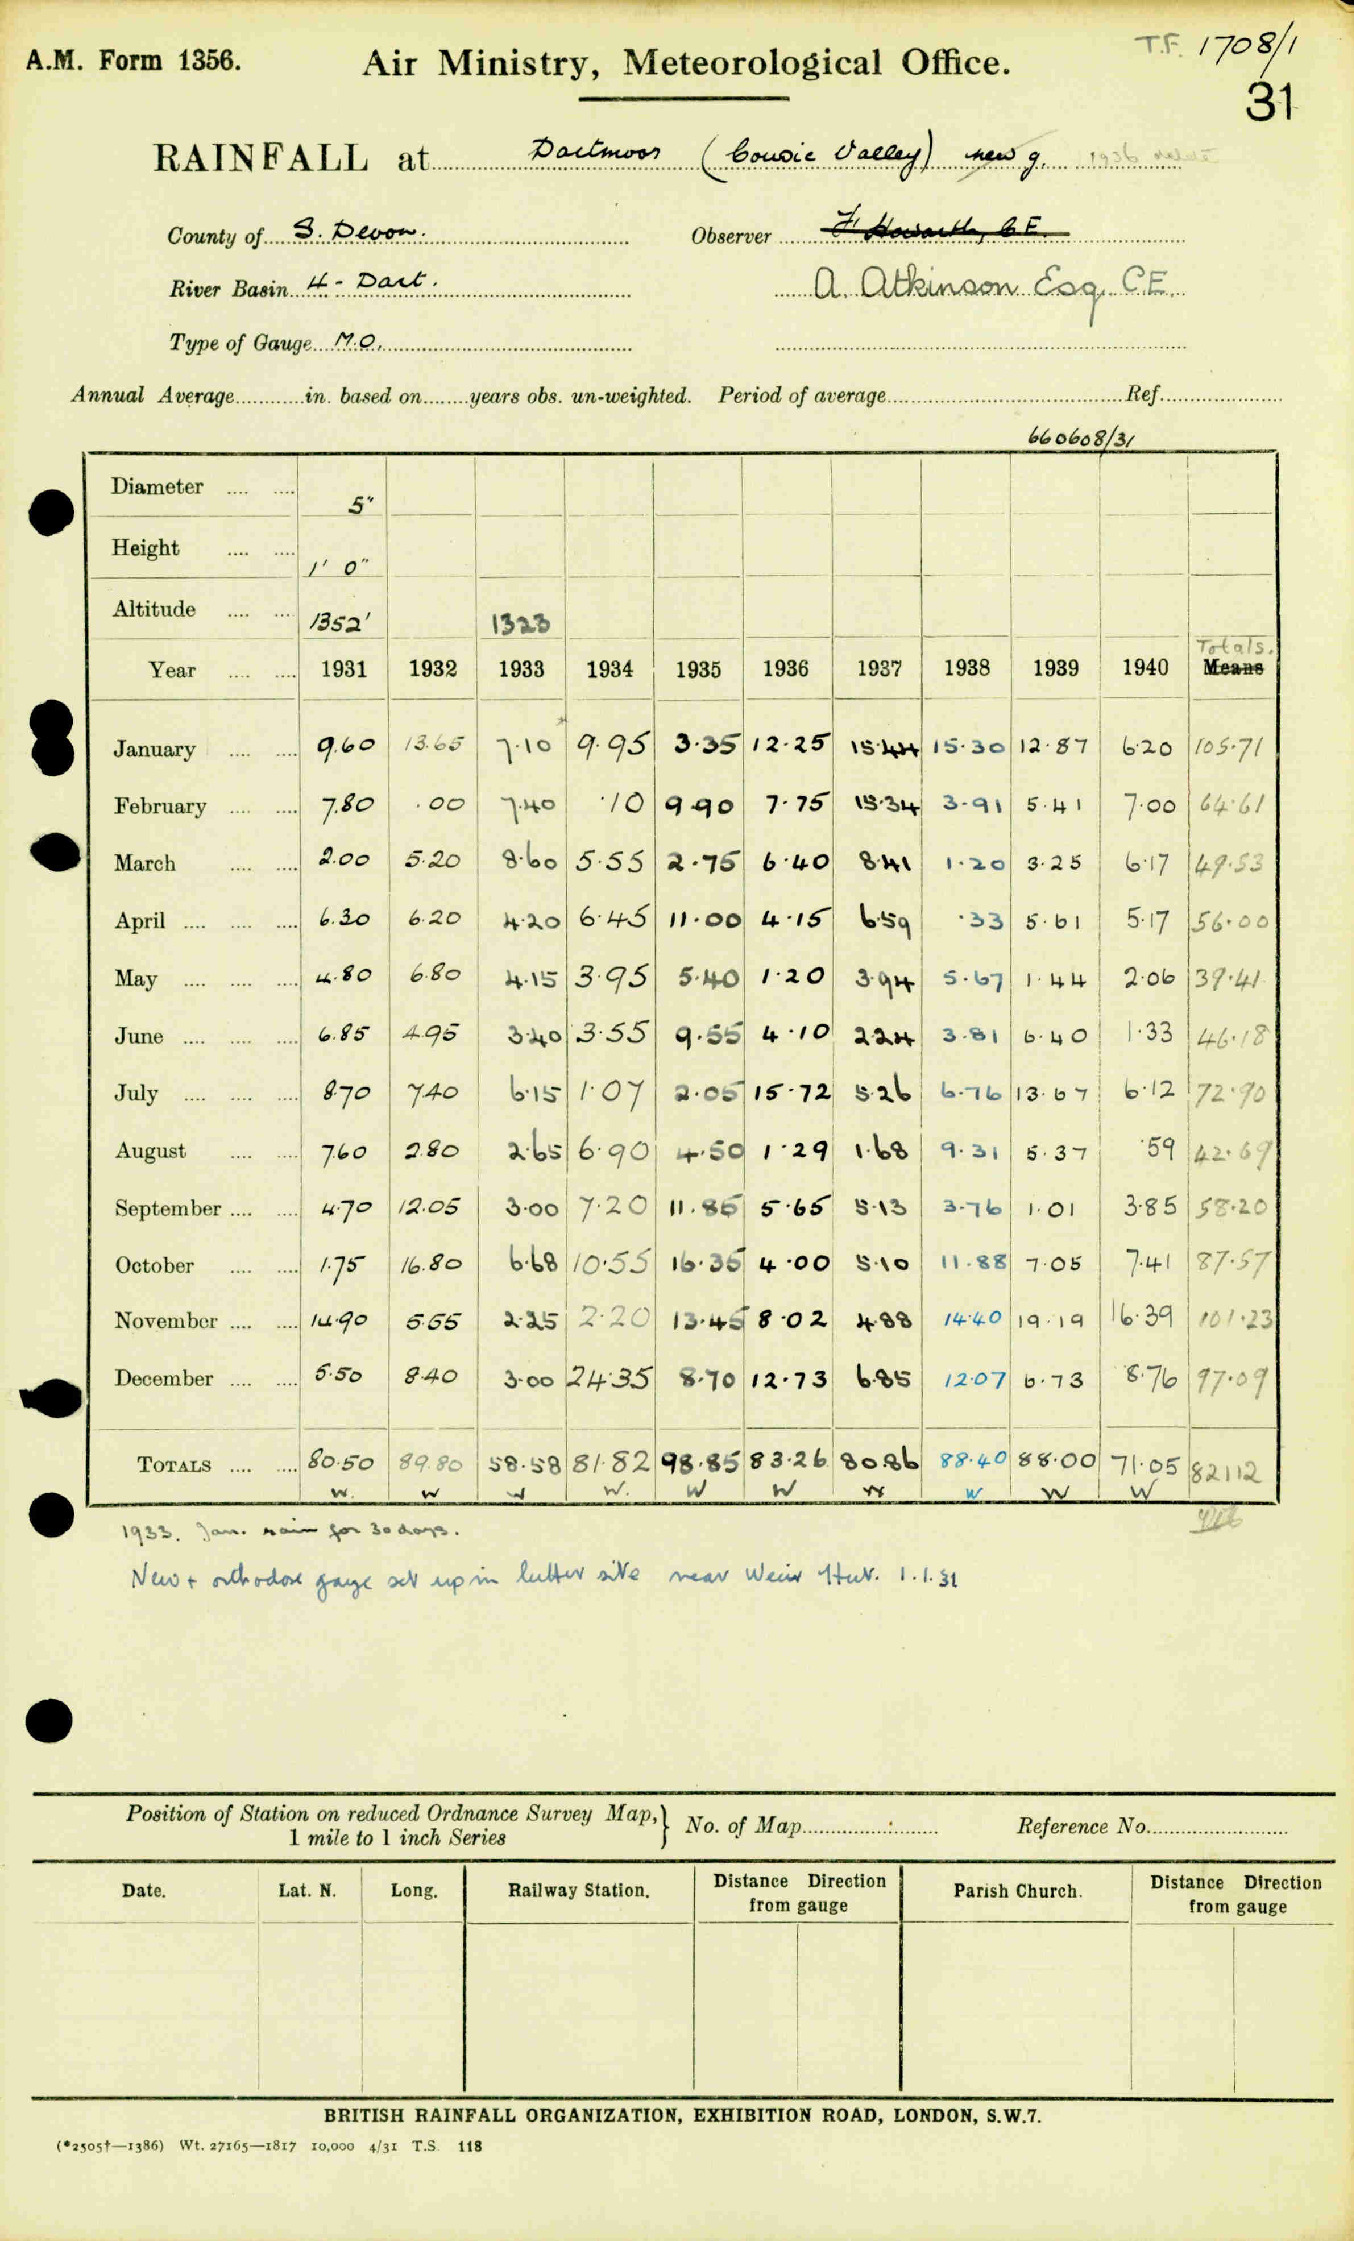 T.F. 1708/1
A.M. Form 1356.
Air Ministry, Meteorological Office.
31
RAINFALL at Dartmoor (Cowsic Valley) new g. 1936
County of S. Devon. Observer F. Howarth, C.E.
River Basin 4 - Dart. A. Atkinson Esq. C.E.
Type of Gauge M.O.
Annual Average in. based on years obs. un-weighted. Period of average Ref.
660608/31
Diameter .... .... 5"
Height .... .... 1' 0"
Altitude .... .... 1352' 1323
Totals.
Year .... .... 1931 1932 1933 1934 1935 1936 1937 1938 1939 1940 Means
January .... .... 9.60 13.65 7.10* 9.95 3.35 12.25 15.44 15.30 12.87 6.20 105.71
February .... .... 7.80 .00 7.40 .10 9.90 7.75 15.34 3.91 5.41 7.00 64.61
March .... .... 2.00 5.20 8.60 5.55 2.75 6.40 8.41 1.20 3.25 6.17 49.53
April .... .... .... 6.30 6.20 4.20 6.45 11.00 4.15 6.59 .33 5.61 5.17 56.00
May .... .... .... 4.80 6.80 4.15 3.95 5.40 1.20 3.94 5.67 1.44 2.06 39.41
June .... .... .... 6.85 4.95 3.40 3.55 9.55 4.10 2.24 3.81 6.40 1.33 46.18
July .... .... .... 8.70 7.40 6.15 1.07 2.05 15.72 5.26 6.76 13.67 6.12 72.90
August .... .... 7.60 2.80 2.65 6.90 4.50 1.29 1.68 9.31 5.37 .59 42.69
September .... .... 4.70 12.05 3.00 7.20 11.85 5.65 5.13 3.76 1.01 3.85 58.20
October .... .... 1.75 16.80 6.68 10.55 16.35 4.00 5.10 11.88 7.05 7.41 87.57
November .... .... 14.90 5.55 2.25 2.20 13.45 8.02 4.88 14.40 19.19 16.39 101.23
December .... .... 5.50 8.40 3.00 24.35 8.70 12.73 6.85 12.07 6.73 8.76 97.09
TOTALS .... .... 80.50 89.80 58.58 81.82 98.85 83.26 80.86 88.40 88.00 71.05 821.12
W. W W W. W W W W W W
1933. Jan. rain for 30 days.
New & orthodox gauge set up in better site near Weir Hut. 1.1.31
Position of Station on reduced Ordnance Survey Map, } No. of Map Reference No.
1 mile to 1 inch Series
Date. Lat. N. Long. Railway Station. Distance Direction from gauge Parish Church. Distance Direction from gauge
BRITISH RAINFALL ORGANIZATION, EXHIBITION ROAD, LONDON, S.W.7.
(*2505†—1386) Wt. 27165—1817 10,000 4/31 T.S. 118